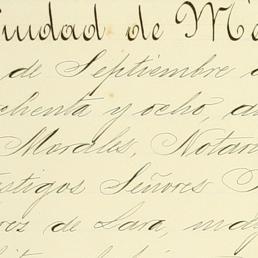 iudad de Mé
de Septiembre
chenta y ocho, a
Morales, Notar
stigos Señores
rez de Lara, may